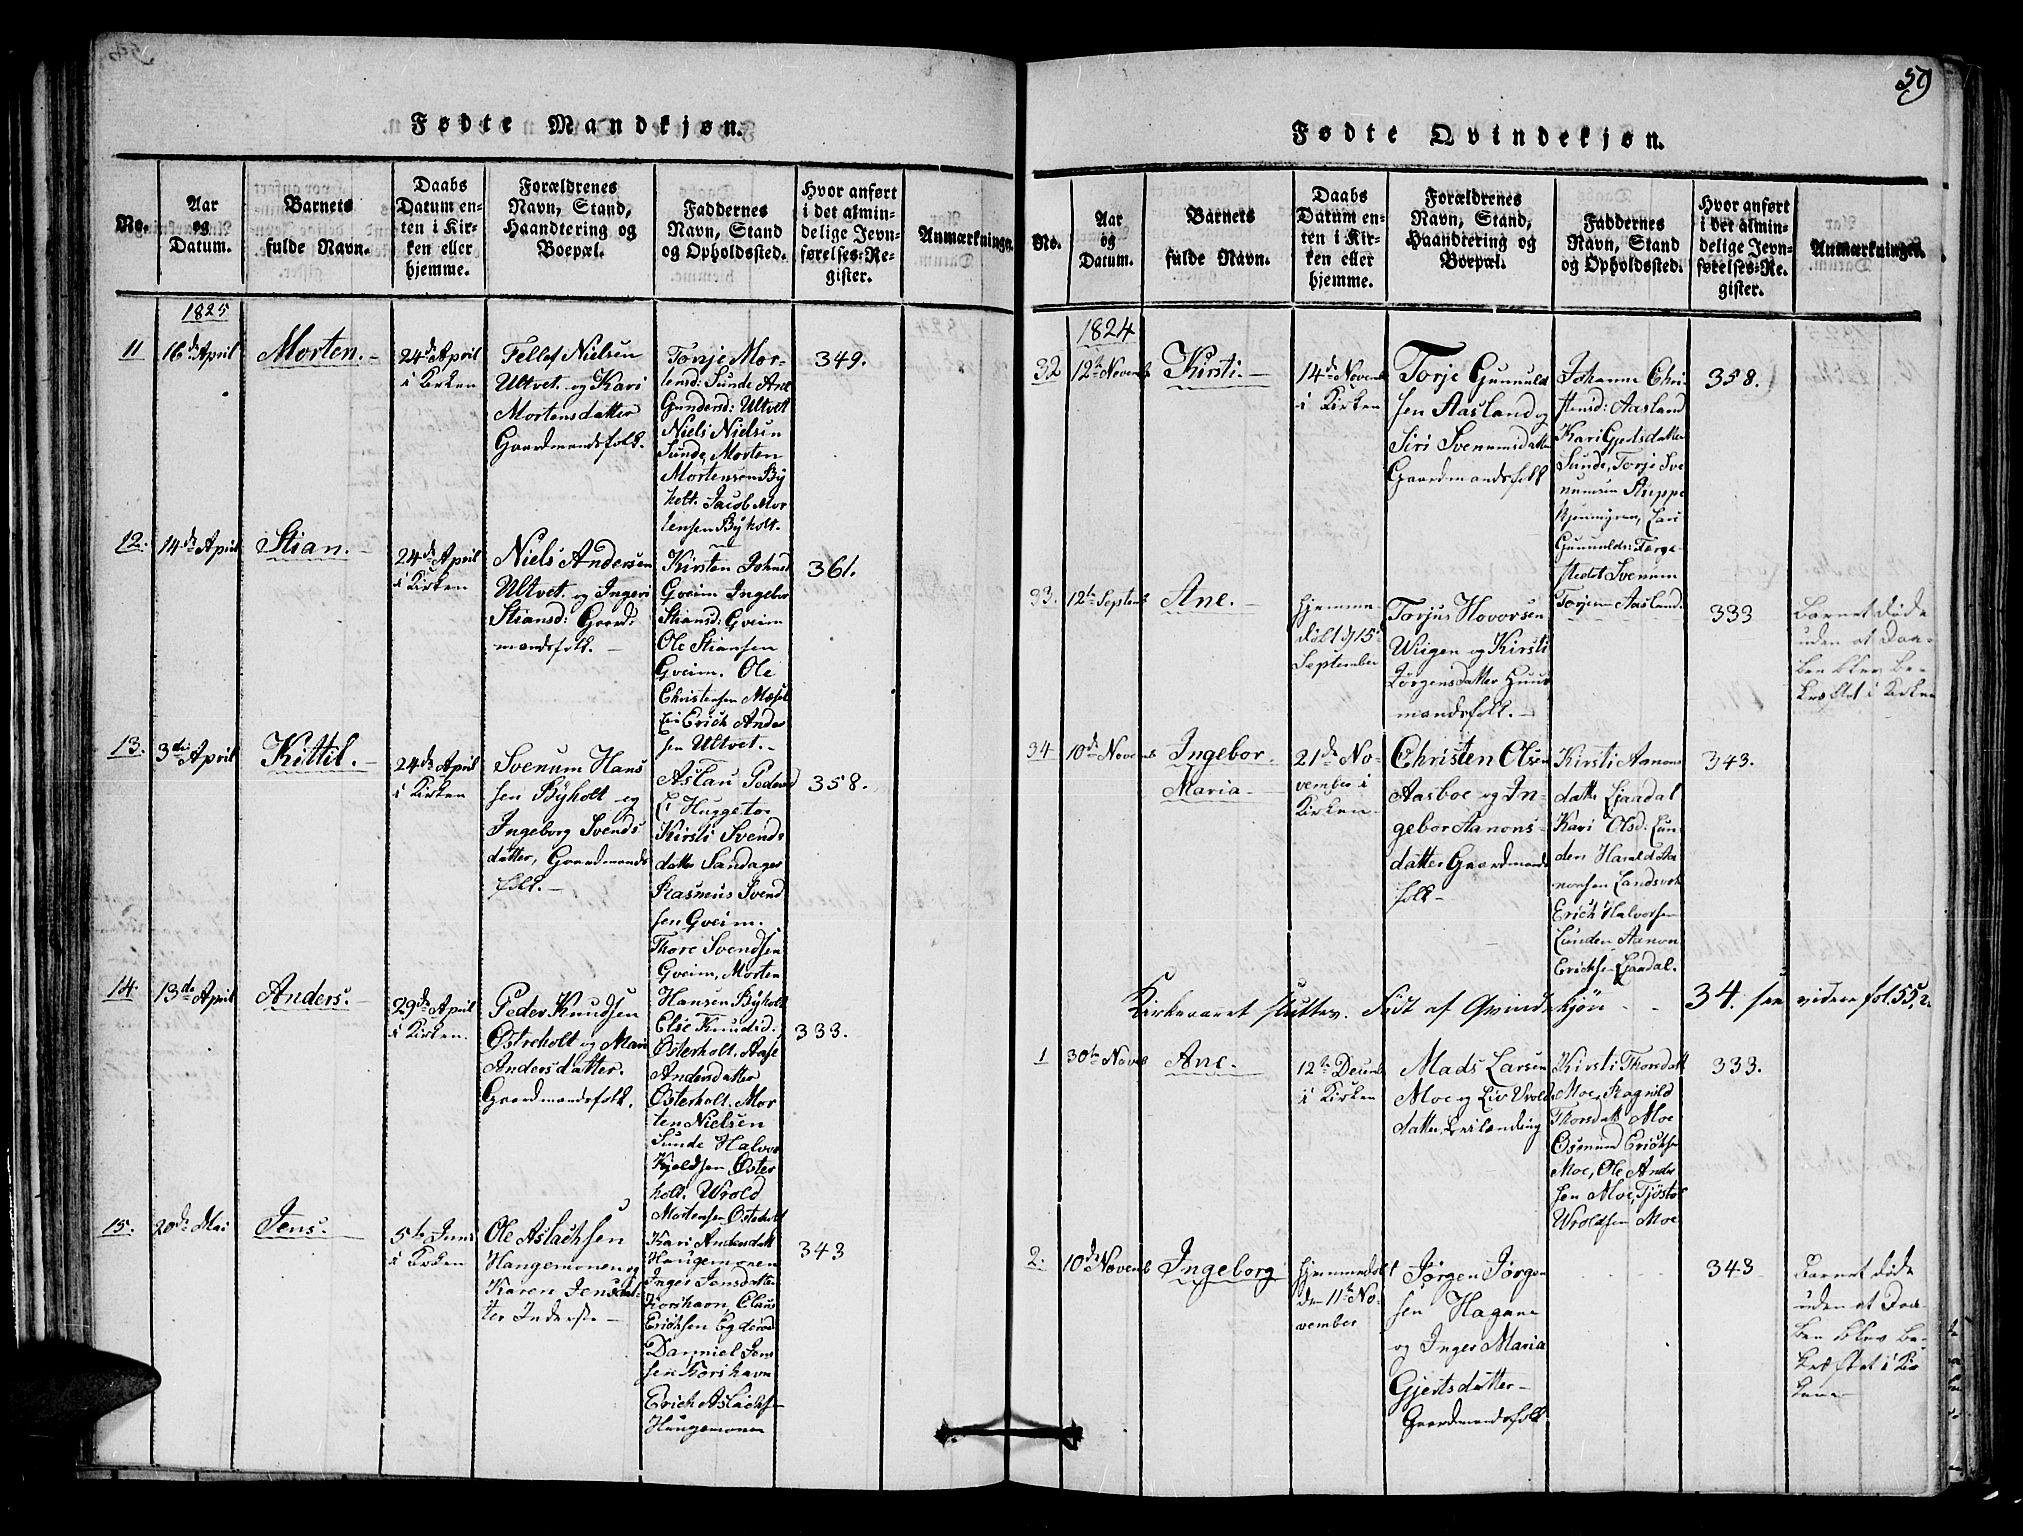 Fødte Mandkjøn.
No.
Aar
og
Datum.
Barnets
fulde Navn.
Daabs
Datum en-
ten i Kir-
ken eller
hjemme.
Forældrenes
Navn, Stand,
Haandtering og
Boepæl.
Faddernes
Navn, Stand
og Opholdssted.
Hvor anført
i det almin-
delige Jevn-
førelses-Re-
gister.
Anmærkninger.
1825
11
16de April
Morten.
24de April
i Kirken
Tellef Nielsen
Ultvet og Kari
Mortensdatter
Gaardmandsfolk.
Torje Mor-
tensd: Sunde Ane
Gundersd: Ultvet
Niels Nielsen
Sunde, Morten
Mortensen By
holt. Jacob Mor
tensen Byholt.
349.
12.
14de April
Stian.
24de April
i Kirken
Niels Andersen
Ultvet og Ingeri
Stiansd: Gaard-
mandsfolk.
Kirsten Johnsd
Gveim Ingebor
Stiansd: Gveim
Ole Stiansen
Gveim. Ole
Christensen Mæsel
Erich Ander
sen Ultvet.
361.
13.
3de April
Kittil.
24de April
i Kirken
Svenum Hans
sen Byholt og
Ingeborg Svends
datter, Gaardmands
folk.
Aslau Peders
Huggeto.
Kirsti Svends
datter Sandager
Rasmus Svend
sen Gveim.
Thore Svendsen
Gveim, Morten
Hansen Byholt
358.
14.
13de April
Anders.
29de April
i Kirken.
Peder Knudsen
Østreholt og Mari
Andersdatter.
Gaardmandsfolk.
Else Knudsd.
Østerholt. Aase
Andersdatter
Østerholt. Mor
ten Nielsen
Sunde Halvor
Kjeldsen Øster
holt. Wrold
Mortensen Østerholt
333.
15.
20de Mai
Jens.
5te Juni
i Kirken
Ole Aslachsen
Haugemonen og
Karen Jensdat-
ter Inderste
Kari Andersdatt
Haugemonen
Inger Jensdatter
Korshavn, Claus
Erichsen Egderød
Danniel Jens
sen Korshavn
Erich Aslachs-
Haugemonen
343
59
Fødte Qvindekjøn.
No.
Aar
og
Datum.
Barnets
fulde Navn.
Daabs
Datum en-
ten i Kir-
ken eller
hjemme.
Forældrenes
Navn, Stand,
Haandtering og
Boepæl.
Faddernes
Navn, Stand
og Opholdssted.
Hvor anført
i det almin-
delige Jevn-
førelses-Re-
gister.
Anmærkninger.
1824
32
12te Novemb
Kirsti.
14de Novemb
i Kirken
Torje Gunnuld
sen Aasland og
Siri Svenumsdatter
Gaardmandsfolk
Johanne Chri
stensd: Aasland
Kari Gjertsdatter
Sunde, Torje Sve
numsen Stuppe
Gunnulds: Torge-
stedet Svenum
Torjesen Aasland.
358.
33.
12te Septemb
Ane.
Hjemme-
døbt d 15
September
Torjus Hovorsen
Wiigen og Kirsti
Jørgensdatter Huus
mandsfolk.
333
Barnet døde
uden at Daa-
ben blev be-
kræftet i Kirken
34
10de Novemb
Ingebor
Maria
21de No-
vember i
Kirken
Christen Olsen
Aasboe og In-
gebor Aanons-
datter Gaardmands
folk
Kirsti Aanons
datter Ljaadal
Kari Olsd. Lun-
den Harald Aa-
nonsen Landsverk
Erich Halvorsen
Lunden Aanon
Erichsen Ljaadal.
343.
Kirkeaaret sluttes. Født af Qvindekjøn 34. see videre fol. 55, 2.
1
30te Novb
Ane.
12te Decemb
i Kirken
Mads Larsen
Moe og Liv Wrolds
datter,
Kirsti Thorsdatt
Moe, Ragnild
Thorsdatt Moe
Osmund Erichsen
Moe, Ole Ander
sen Moe, Tjøstol
Wroldsen Moe
333.
2.
10de Novemb
Ingeborg
Hjemmedøbt
den 11te No-
vember
Jørgen Jørgen
sen Hagane
og Inger Maria
Gjertsdatter
Gaardmandsfolk
343
Barnet døde
uden at Daa-
ben blev be-
kræftet i Kir
kene